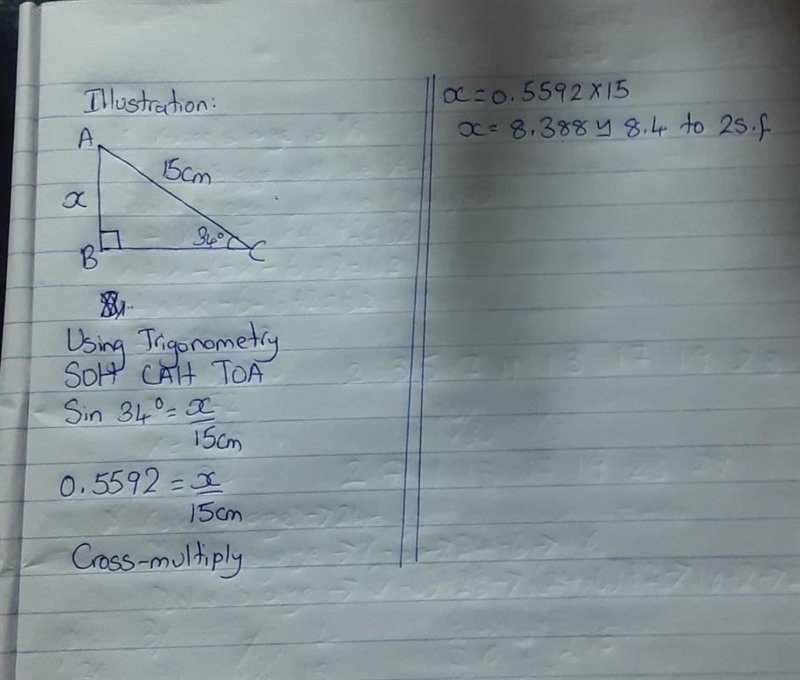 Illustration:
A
15cm
x
34°
B
C
Using Trigonometry
SOH CAH TOA
Sin 34° = x
15cm
0.5592 = x
15cm
Cross-multiply
x = 0.5592 × 15
x = 8.388 8.4 to 2s.f